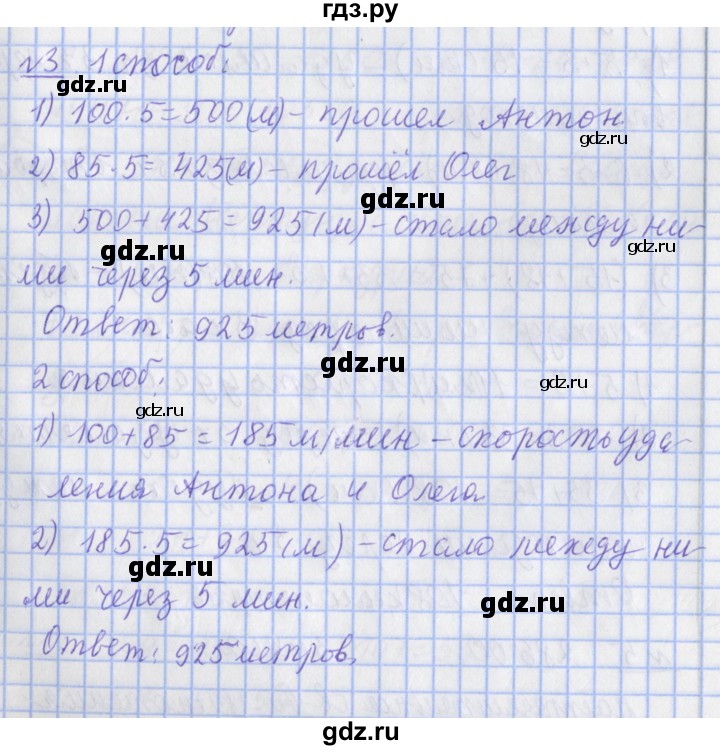 гдз.ру
№3 1 способ.
gdz.ru
1) 100·5=500(м)- прошел Антон
gdz.ru
2) 85·5=425(м)- прошёл Олег
gdz.ru
3) 500+425=925(м)-стало между ни-
gdz.ru
gdz.ru
ми через 5 мин.
Ответ: 925 метров.
gdz.ru
2 способ.
gdz.ru
gdz.ru
1) 100+85=185 м/мин -скорость уда-
gdz.ru
ления Антона и Олега
gdz.ru
2) 185·5=925(м)-стало между ни-
gdz.ru
ми через 5 мин.
gdz.ru
Ответ: 925 метров.
gdz.ru
gdz.ru